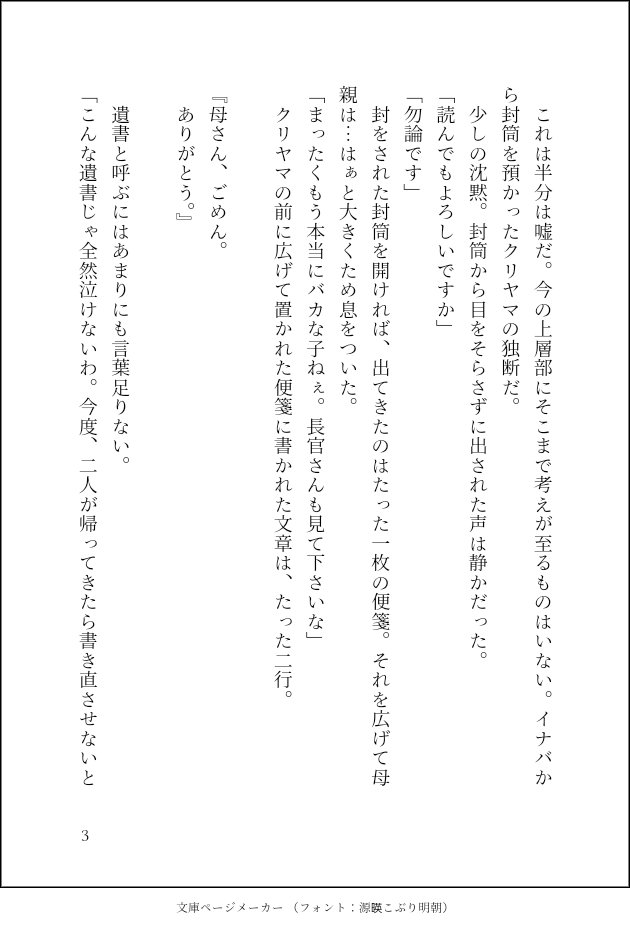 これは半分は嘘だ。今の上層部にそこまで考えが至るものはいない。イナバか
ら封筒を預かったクリヤマの独断だ。
　少しの沈黙。封筒から目をそらさずに出された声は静かだった。
「読んでもよろしいですか」
「勿論です」
　封をされた封筒を開ければ、出てきたのはたった一枚の便箋。それを広げて母
親は…はぁと大きくため息をついた。
「まったくもう本当にバカな子ねぇ。長官さんも見て下さいな」
　クリヤマの前に広げて置かれた便箋に書かれた文章は、たった二行。
『母さん、ごめん。
　ありがとう。』
　遺書と呼ぶにはあまりにも言葉足りない。
「こんな遺書じゃ全然泣けないわ。今度、二人が帰ってきたら書き直させないと
3
文庫ページメーカー（フォント：源暎こぶり明朝）